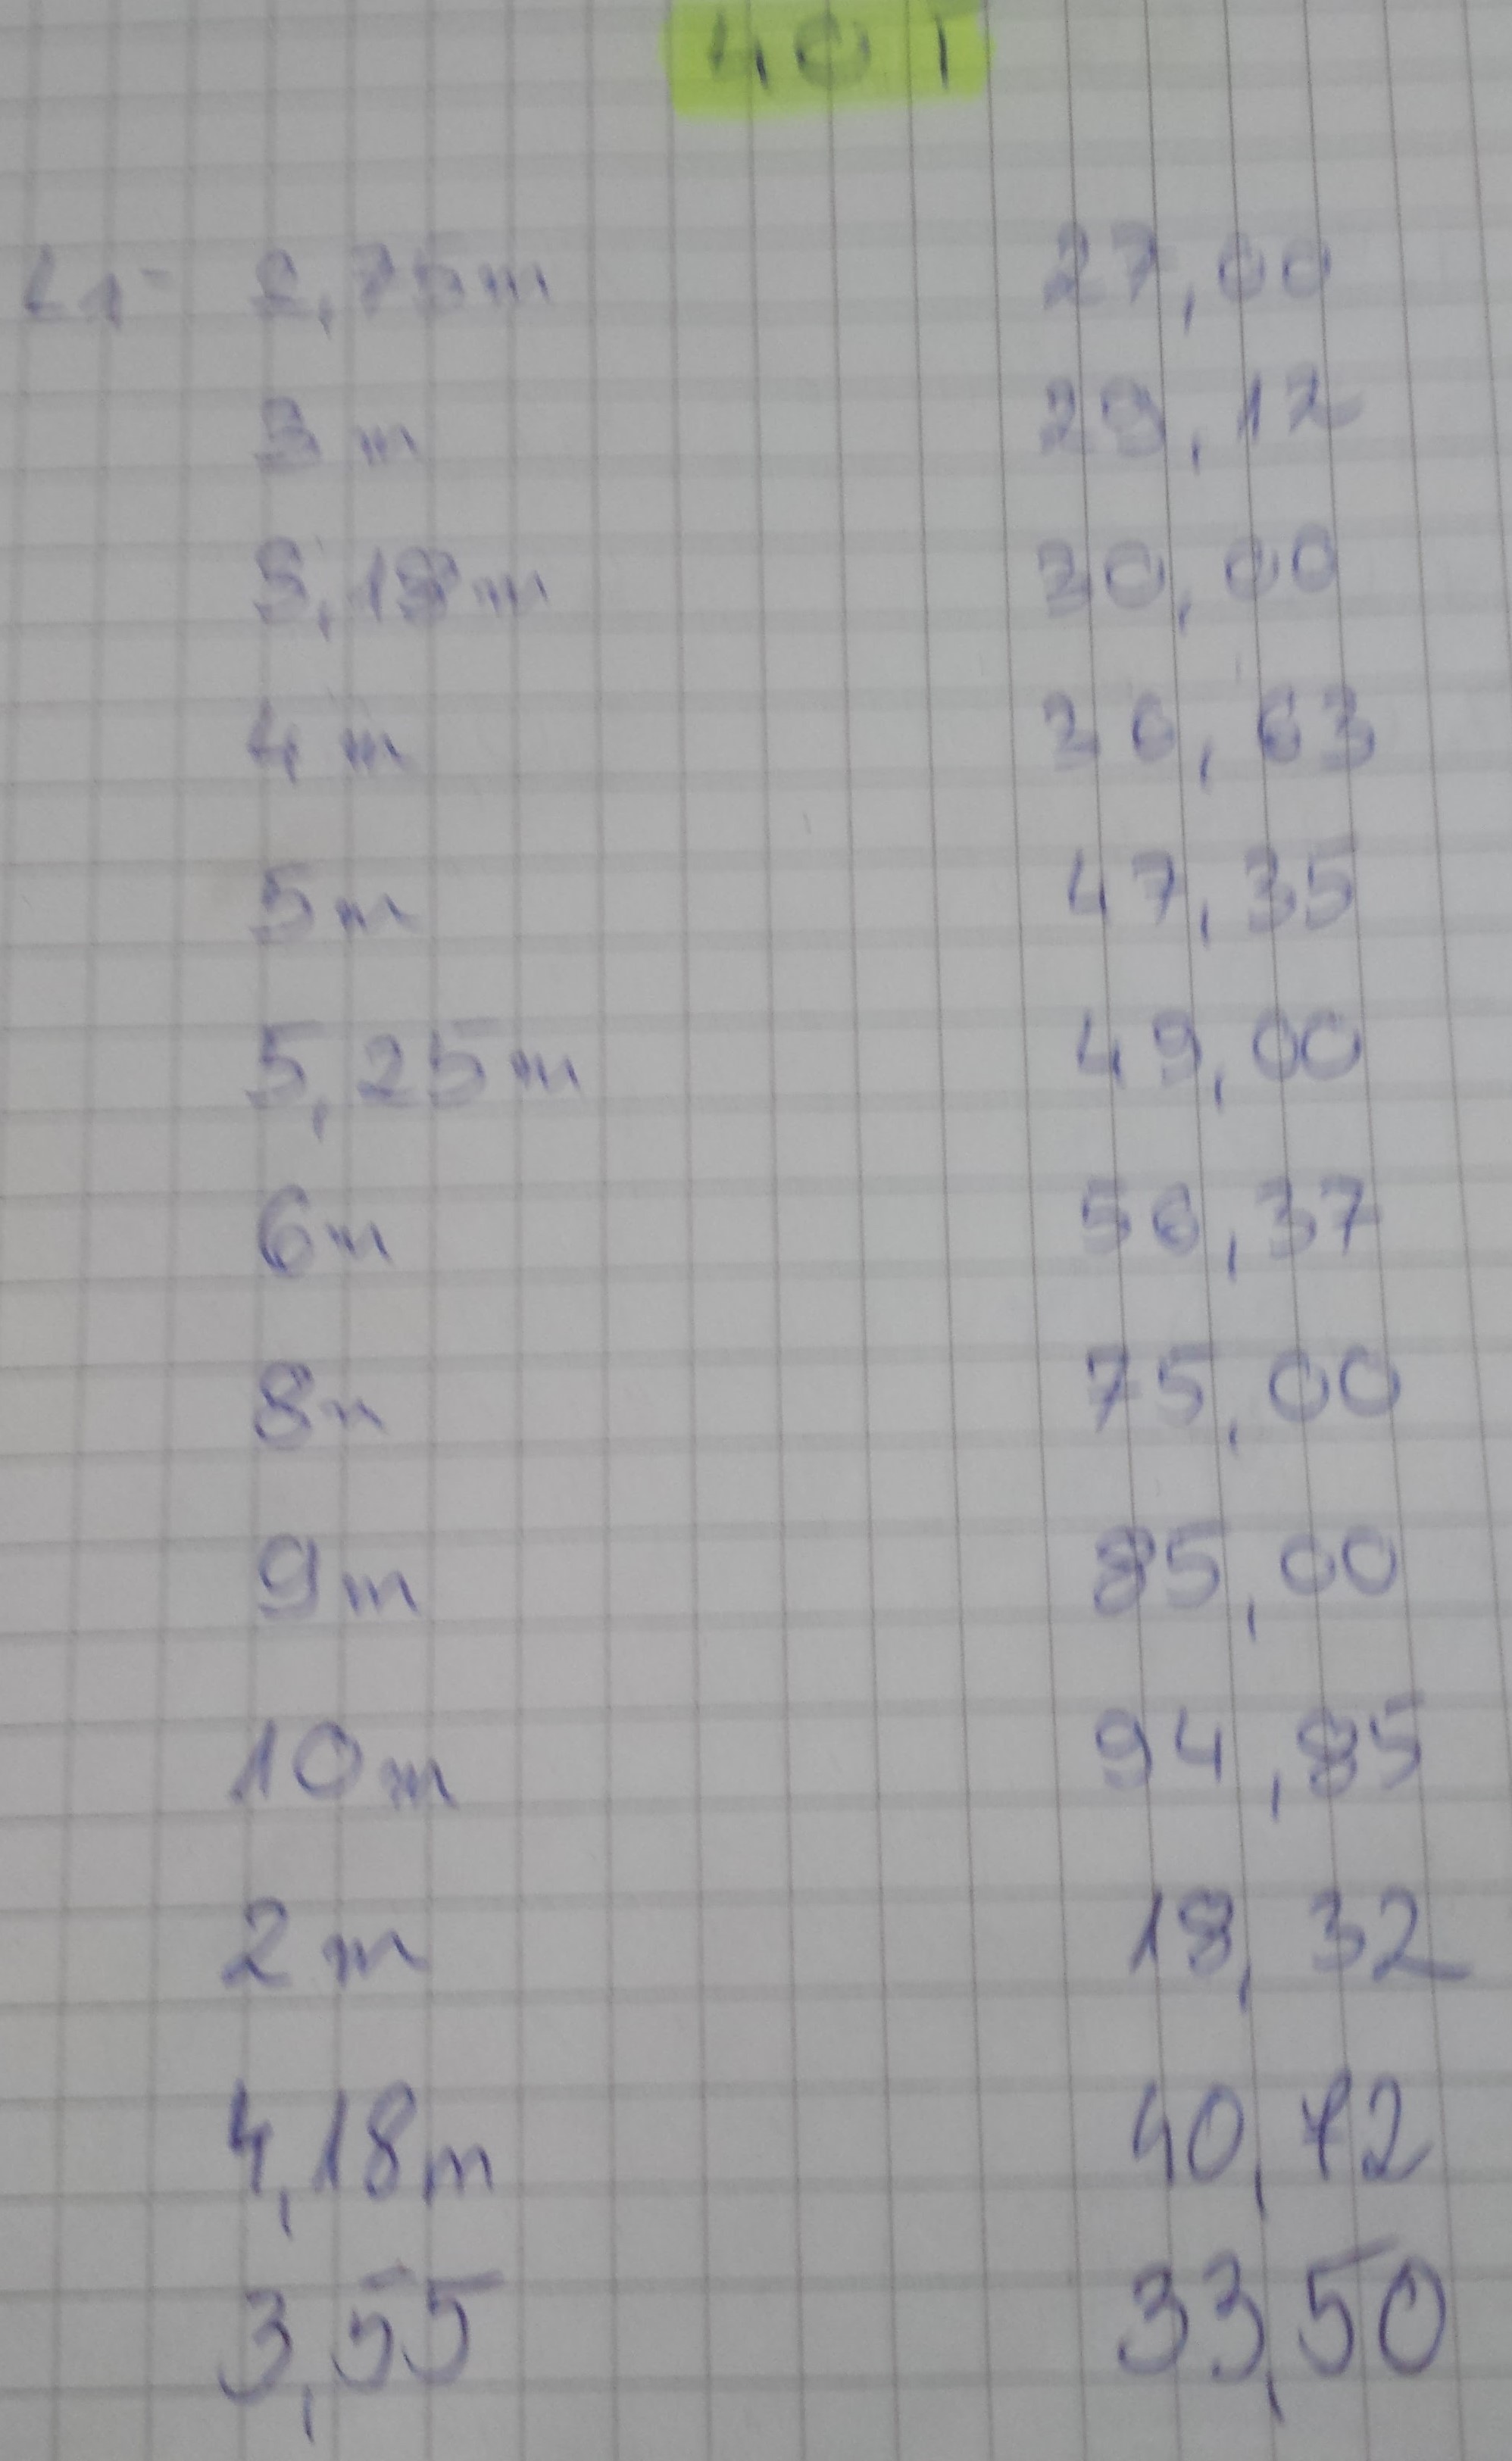 401
L1- 2,75m 27,00
3m 29,12
3,18m 30,00
4m 36,63
5m 47,35
5,25m 49,00
6m 56,37
8m 75,00
9m 85,00
10m 94,85
2m 18,32
4,18m 40,72
3,55 33,50